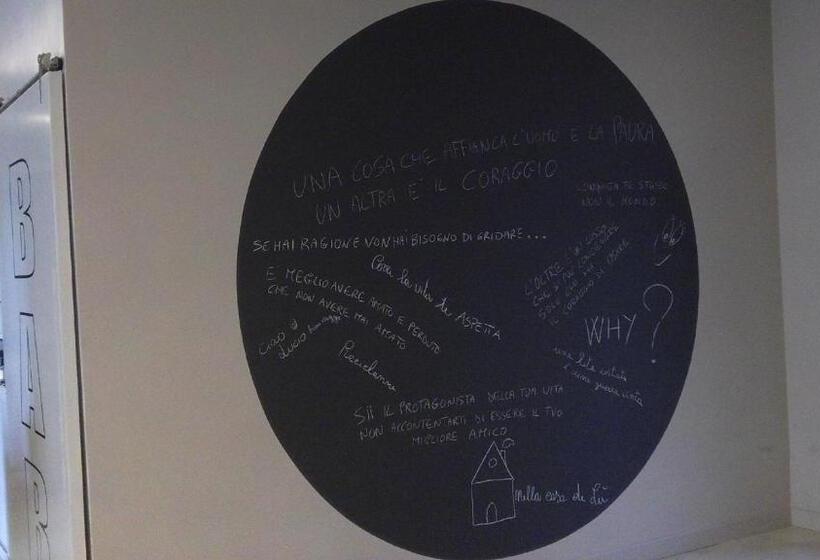 UNA COSA CHE AFFIANCA L'UOMO E LA PAURA
UN ALTRA E' IL CORAGGIO
TE STESSO
NON IL MONDO
SE HAI RAGIONE NON HAI BISOGNO DI GRIDARE...
E MEGLIO AVERE AMATO E PERDUTO
CHE NON AVERE MAI AMATO
la vita ti ASPETTA
L'OLTRE
SOLO CHI HA
IL CORAGGIO DI OSARE
WHY?
CIAO
LUCIO
una lite evitata
è una guerra vinta
SII IL PROTAGONISTA DELLA TUA VITA
NON ACCONTENTARTI DI ESSERE IL TUO
MIGLIORE AMICO
nella casa di Lù
BAR